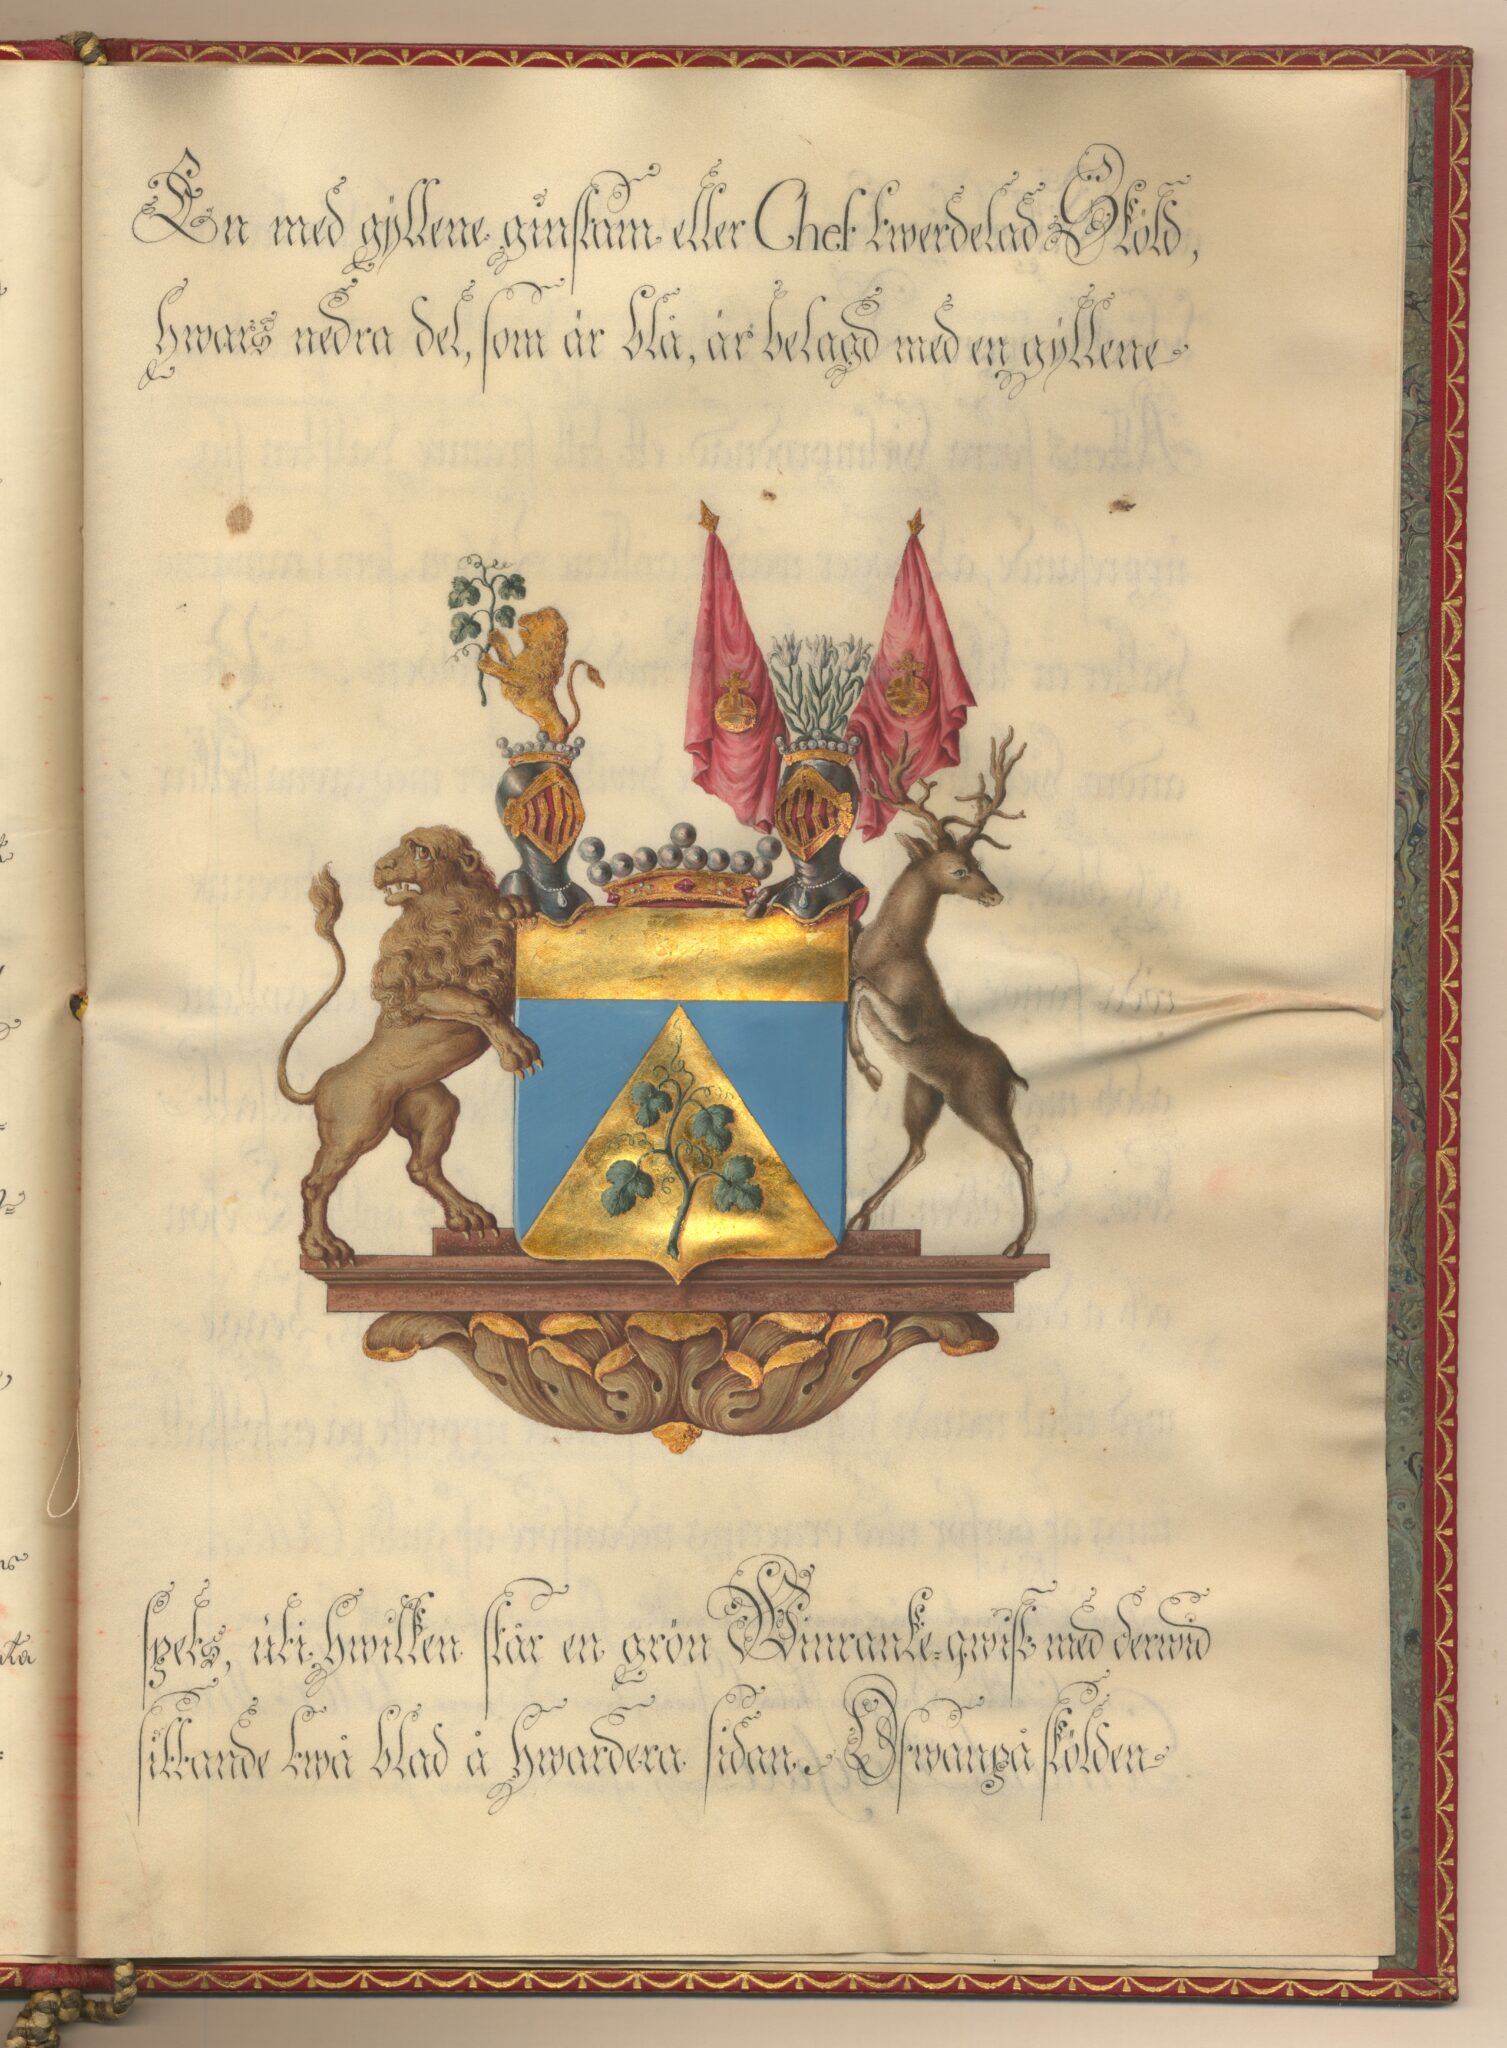 En med gÿllene ginstam eller Chef twerdelad Sköld,
hwars nedra del, som är blå, är belagd med en gÿllene
spets, uti hwilken står en grön Winranke-qwist med derwid
sittande twå blad å hwardera sidan. Ofwanpå skölden